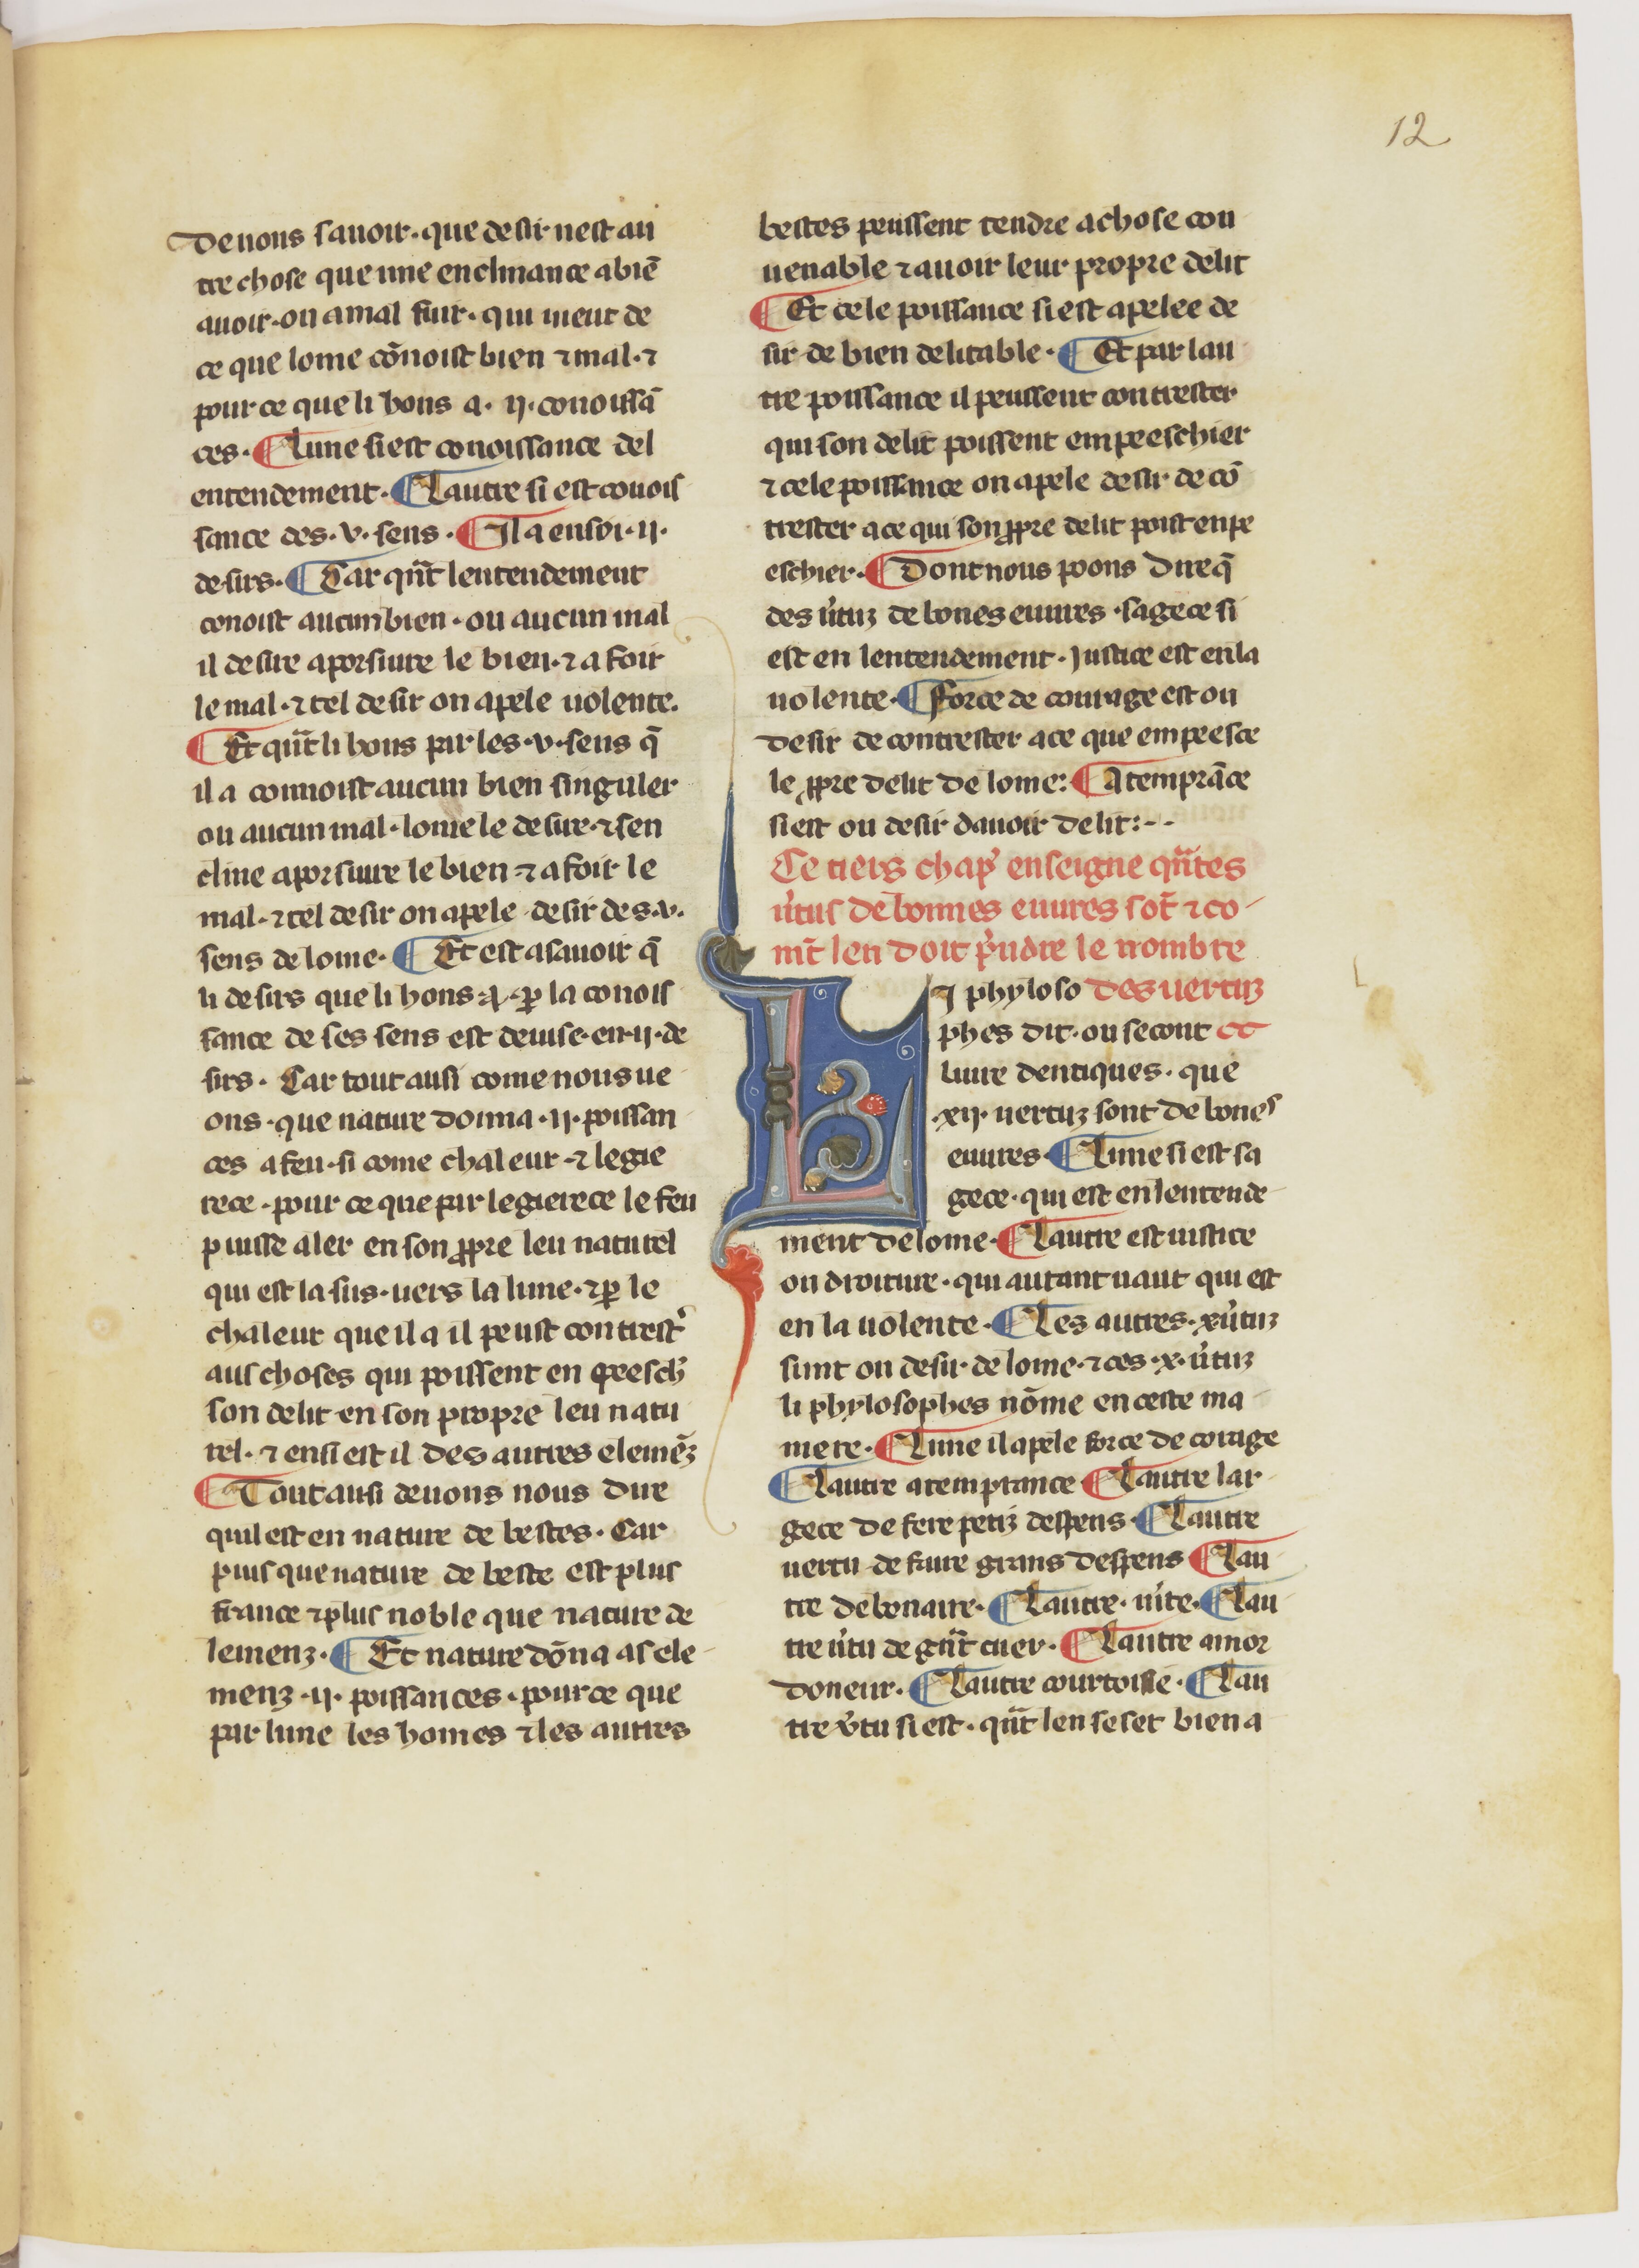 12
deuons sauoir · que desir nest au
tre chose que une enclinance a biē
auoir · ou a mal fuir · qui uient de
ce que lome cōnoist bien ⁊ mal · ⁊
pour ce que li hons a · ij · conoissā
ces · ¶ Lune si est conoissance del
entendement · ¶ Lautre si est conois
sance des · v · sens · ¶ Il a en soi · ij ·
desirs · ¶ Car qn̄t lentendement
conoist aucun bien · ou aucun mal
il desire a porsiure le bien · ⁊ a foir
le mal · ⁊ tel desir on apele uolente .
¶ Et qn̄t li hons par les · v · sens q̄
il a connoist aucun bien singuler
ou aucun mal · lome le desire · ⁊ sen
cline a porsiure le bien ⁊ a foir le
mal · ⁊ tel desir on apele desir des · v ·
sens de lome · ¶ Et est a sauoir q̄
li desirs que li hons a · ꝑ la conois
sance de ses sens est deuise · en · ij · de
sirs · Car tout ausi come nous ue
ons · que nature donna · ij · poissan
ces a feu · si come chaleur · ⁊ legie
rece · pour ce que par legierece le feu
puisse aler en son ꝓpre leu naturel
qui est la sus · uers la lune · ⁊ ꝑ le
chaleur que il a il peust contrest᾿
aus choses qui poissent enpeesch᾿
son delit en son propre leu natu
rel · ⁊ ensi est il des autres elemēz
¶ Tout ausi deuons nous dire
quil est en nature de bestes · Car
puis que nature de beste est plus
france ⁊ plus noble que nature de
lemenz · ¶ Et nature dōna as ele
menz · ij · poissances · pour ce que
par lune les homes ⁊ les autres
bestes peussent tendre a chose cou
uenable ⁊ auoir leur propre delit
¶ Et cele poissance si est apelee de
sir de bien delitable · ¶ Et par lau
tre poissance il peussent contrester
qui son delit poissent empeeschier
⁊ cele poissance on apele desir de cō
trester a ce qui son ꝓpre delit poist enpe
eschier · ¶ Dont nous poons dire q̄
des u᾿tuz de bones euures · sagece si
est en lentendement · Justice est en la
uolente · ¶ Force de courage est ou
desir de contrester a ce que empeesce
le ꝓpre delit de lome : ¶ Atemprāce
si est ou desir dauoir delit : - -
Ce tiers chap᾿ enseigne qn̄tes
u᾿tus de bonnes euures sōt ⁊ co
mt̄ len doit p᾿ndre le nombre
des uertuz
LJ phyloso
phes dit · ou secont
liure dentiques · que
· xij · uertuz sont de bones
euures · ¶ Lune si est sa
gece · qui est en lentende
ment de lome · ¶ Lautre est iustice
ou droiture · qui autant uaut qui est
en la uolente · ¶ Les autres · x u᾿tuz
sunt ou desir · de lome · ⁊ ces · x · u᾿tuz
li phylosophes nōme en ceste ma
niere · ¶ Lune il apele force de corage
¶ Lautre atemprance ¶ Lautre lar
gece de fere petiz despens · ¶ Lautre
uertu de faire grans despens ¶ Lau
tre debonaire · ¶ Lautre · u᾿ite · ¶ Lau
tre u᾿tu de gn̄t cuer · ¶ Lautre amor
doneur · ¶ Lautre courtoisie · ¶ Lau
tre v᾿tu si est · qn̄t len se set bien a